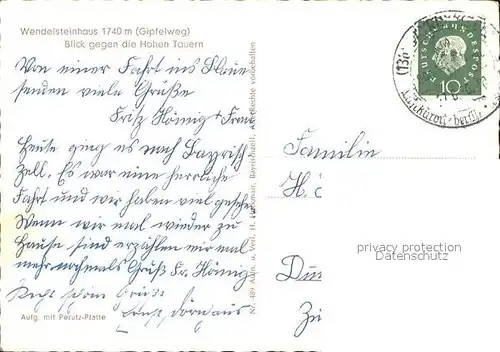 Wendelsteinhaus 1740 m (Gipfelweg)
Blick gegen die Hohen Tauern
Von einer Fahrt ins Blaue
senden viele Grüße
Fritz Hönig + Frau
Heute ging es nach Bayrisch-
Zell. Es war eine herrliche
Fahrt und wir haben viel gesehen
Wenn wir mal wieder zu
Hause sind erzählen wir mal
mehr nochmals Gruß Fr. Hönig
Recht schöne Grüße
Ernst
Aufg. mit Perutz-Platte
Nr. 489 Aufn. u. Verl. H. Bayrischzell, Alle Rechte vorbehalten
DEUTSCHE BUNDESPOST
10
(13b)
Familie
H.
privacy protection
Datenschutz